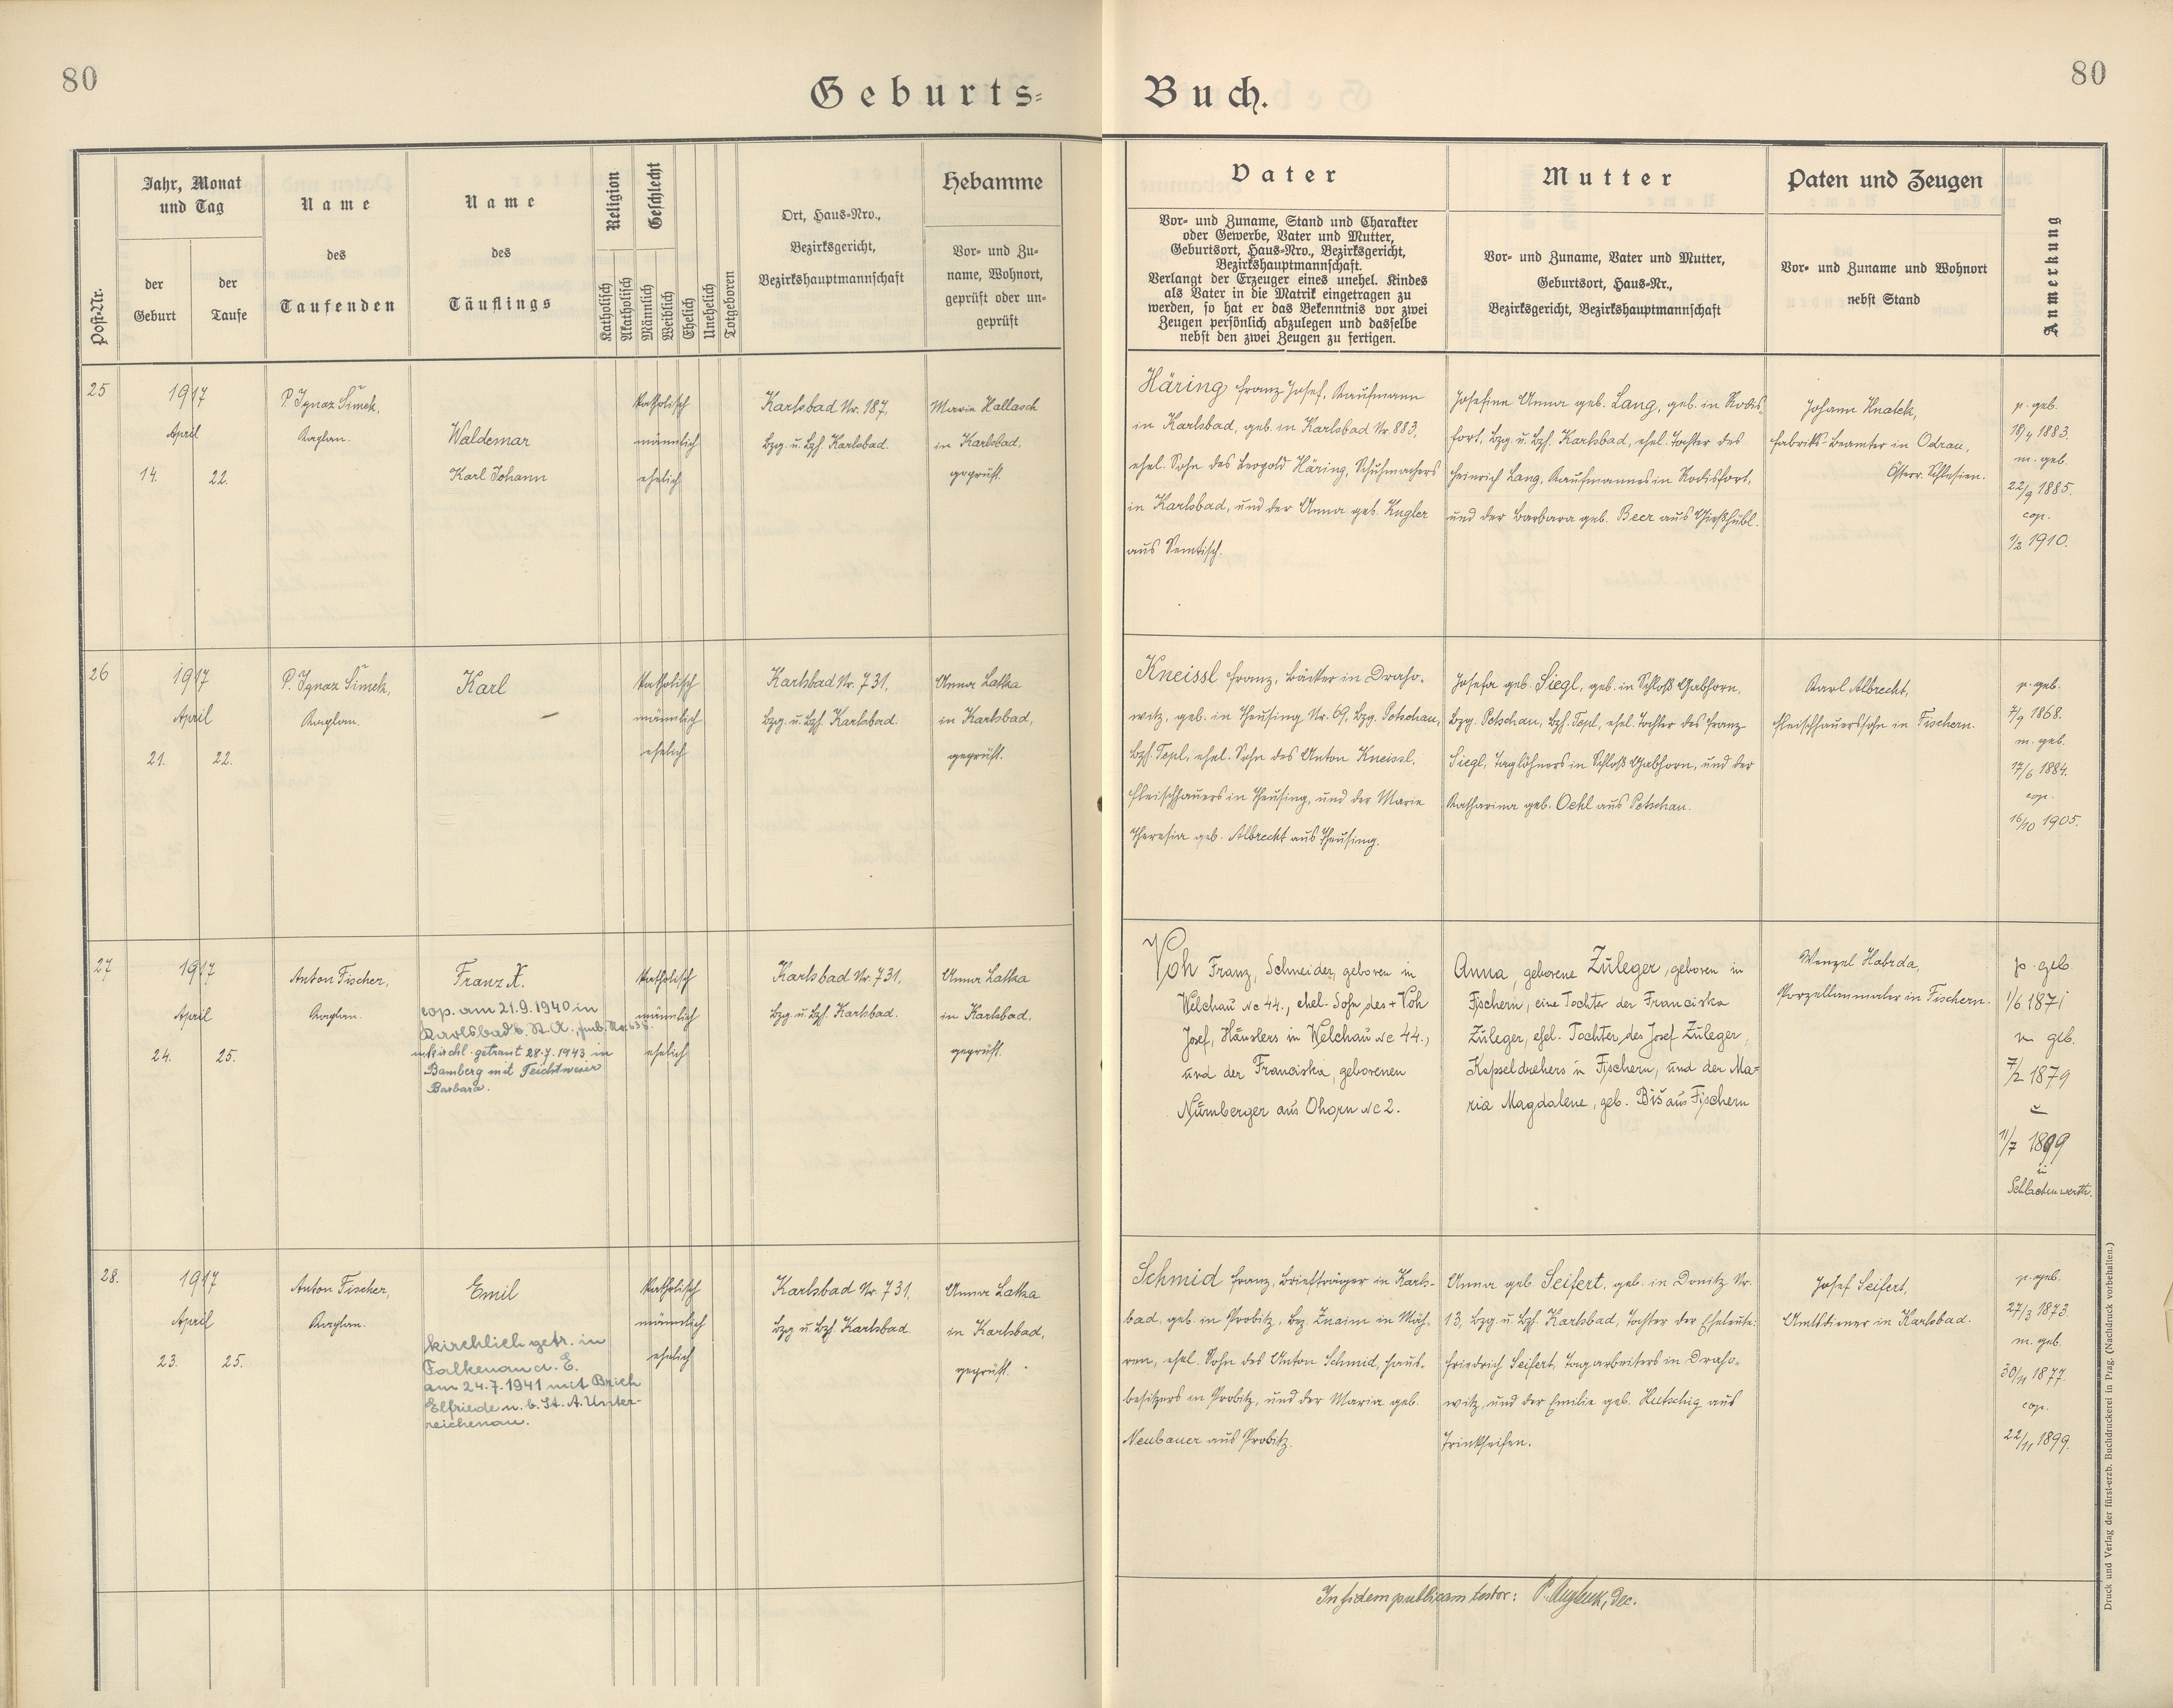 80
Geburts=
Buch.
80
Post-Nr.
Jahr, Monat
und Tag
der
Geburt
der
Taufe
Name
des
Taufenden
Name
des
Täuflings
Religion
Katholisch
Akatholisch
Geschlecht
Männlich
Weiblich
Ehelich
Unehelich
Totgeboren
Ort, Haus-Nro.,
Bezirksgericht,
Bezirkshauptmannschaft
Hebamme
Vor- und Zu-
name, Wohnort,
geprüft oder un-
geprüft
Vater
Vor- und Zuname, Stand und Charakter
oder Gewerbe, Vater und Mutter,
Geburtsort, Haus-Nro., Bezirksgericht,
Bezirkshauptmannschaft.
Verlangt der Erzeuger eines unehel. Kindes
als Vater in die Matrik eingetragen zu
werden, so hat er das Bekenntnis vor zwei
Zeugen persönlich abzulegen und dasselbe
nebst den zwei Zeugen zu fertigen.
Mutter
Vor- und Zuname, Vater und Mutter,
Geburtsort, Haus-Nr.,
Bezirksgericht, Bezirkshauptmannschaft
Paten und Zeugen
Vor- und Zuname und Wohnort
nebst Stand
Anmerkung
25
1917
April
14.
22.
P. Ignaz Šimek,
Kaplan.
Waldemar
Karl Johann
Katholisch
männlich
ehelich
Karlsbad Nr. 187,
Bzg. u. Bzh. Karlsbad.
Marie Hallasch
in Karlsbad,
geprüft.
Häring Franz Josef, Kaufmann
in Karlsbad, geb. in Karlsbad Nr. 883,
ehel. Sohn des Leopold Häring, Schuhmachers
in Karlsbad, und der Anna geb. Kugler
aus Semtisch.
Josefine Anna geb. Lang, geb. in Rodis
fort, Bzg. u. Bzh. Karlsbad, ehel. Tochter des
Heinrich Lang, Kaufmannes in Rodisfort,
und der Barbara geb. Beer aus Gießhübl.
Johann Hnatek,
Fabriks-Beamter in Odrau,
Österr. Schlesien.
p. geb.
18/4 1883.
m. geb.
22/9 1885.
cop.
1/2 1910.
26
1917
April
21.
22.
P. Ignaz Šimek,
Kaplan.
Karl
Katholisch
männlich
ehelich
Karlsbad Nr. 731,
Bzg. u. Bzh. Karlsbad.
Anna Latka
in Karlsbad,
geprüft.
Kneissl Franz, Bäcker in Draho-
witz, geb. in Theusing Nr. 69, Bzg. Petschau,
Bzh. Tepl, ehel. Sohn des Anton Kneissl,
Fleischhauers in Theusing, und der Marie
Theresia geb. Albrecht aus Theusing.
Josefa geb. Siegl, geb. in Schloß Gabhorn,
Bzg. Petschau, Bzh. Tepl, ehel. Tochter des Franz
Siegl, Taglöhners in Schloß Gabhorn, und der
Katharina geb. Oehl aus Petschau.
Karl Albrecht,
Fleischhauerssohn in Fischern.
p. geb.
7/9 1868.
m. geb.
17/6 1884.
cop.
16/10 1905.
27
1917
April
24.
25.
Anton Fischer,
Kaplan.
Franz X.
cop. am 21.9.1940 in
Karlsbad b. St. A.,
kirchl. getraut 28.7.1943 in
Bamberg mit Teichtweier
Barbara.
Katholisch
männlich
ehelich
Karlsbad Nr. 731,
Bzg. u. Bzh. Karlsbad.
Anna Latka
in Karlsbad,
geprüft.
Voh Franz, Schneider, geboren in
Welchau Nc 44., ehel. Sohn des + Voh
Josef, Häuslers in Welchau Nc 44.,
und der Franciska, geborenen
Nürnberger aus Ohorn Nc 2.
Anna, geborene Zuleger, geboren in
Fischern, eine Tochter der Franciska
Zuleger, ehel. Tochter des Josef Zuleger,
Kapseldrehers in Fischern, und der Ma=
ria Magdalene, geb. Biš aus Fischern
Wenzel Habrda,
Porzellanmaler in Fischern.
p. geb.
1/6 1871
m geb.
7/2 1879
11/7 1899
in
Schlackenwerth.
28.
1917
April
23.
25.
Anton Fischer,
Kaplan.
Emil
kirchlich getr. in
Falkenau a. E.
am 24.7.1941 mit Brich
Elfriede u. b. St. A. Unter-
reichenau.
Katholisch
männlich
ehelich
Karlsbad Nr. 731,
Bzg. u. Bzh. Karlsbad.
Anna Latka
in Karlsbad,
geprüft.
Schmid Franz, Briefträger in Karls-
bad, geb. in Probitz, Bez. Znaim in Mäh-
ren, ehel. Sohn des Anton Schmid, Haus-
besitzers in Probitz, und der Maria geb.
Neubauer aus Probitz.
Anna geb. Seifert, geb. in Donitz Nr.
13, Bzg. u. Bzh. Karlsbad, Tochter der Eheleute:
Friedrich Seifert, Tagarbeiters in Draho-
witz, und der Emilie geb. Hutschig aus
Trinkseifen.
Josef Seifert,
Amtsdiener in Karlsbad.
p. geb.
27/3 1873.
m. geb.
30/11 1877.
cop.
22/11 1899.
In fidem publicam testor:
Druck und Verlag der fürst-erzb. Buchdruckerei in Prag. (Nachdruck vorbehalten.)